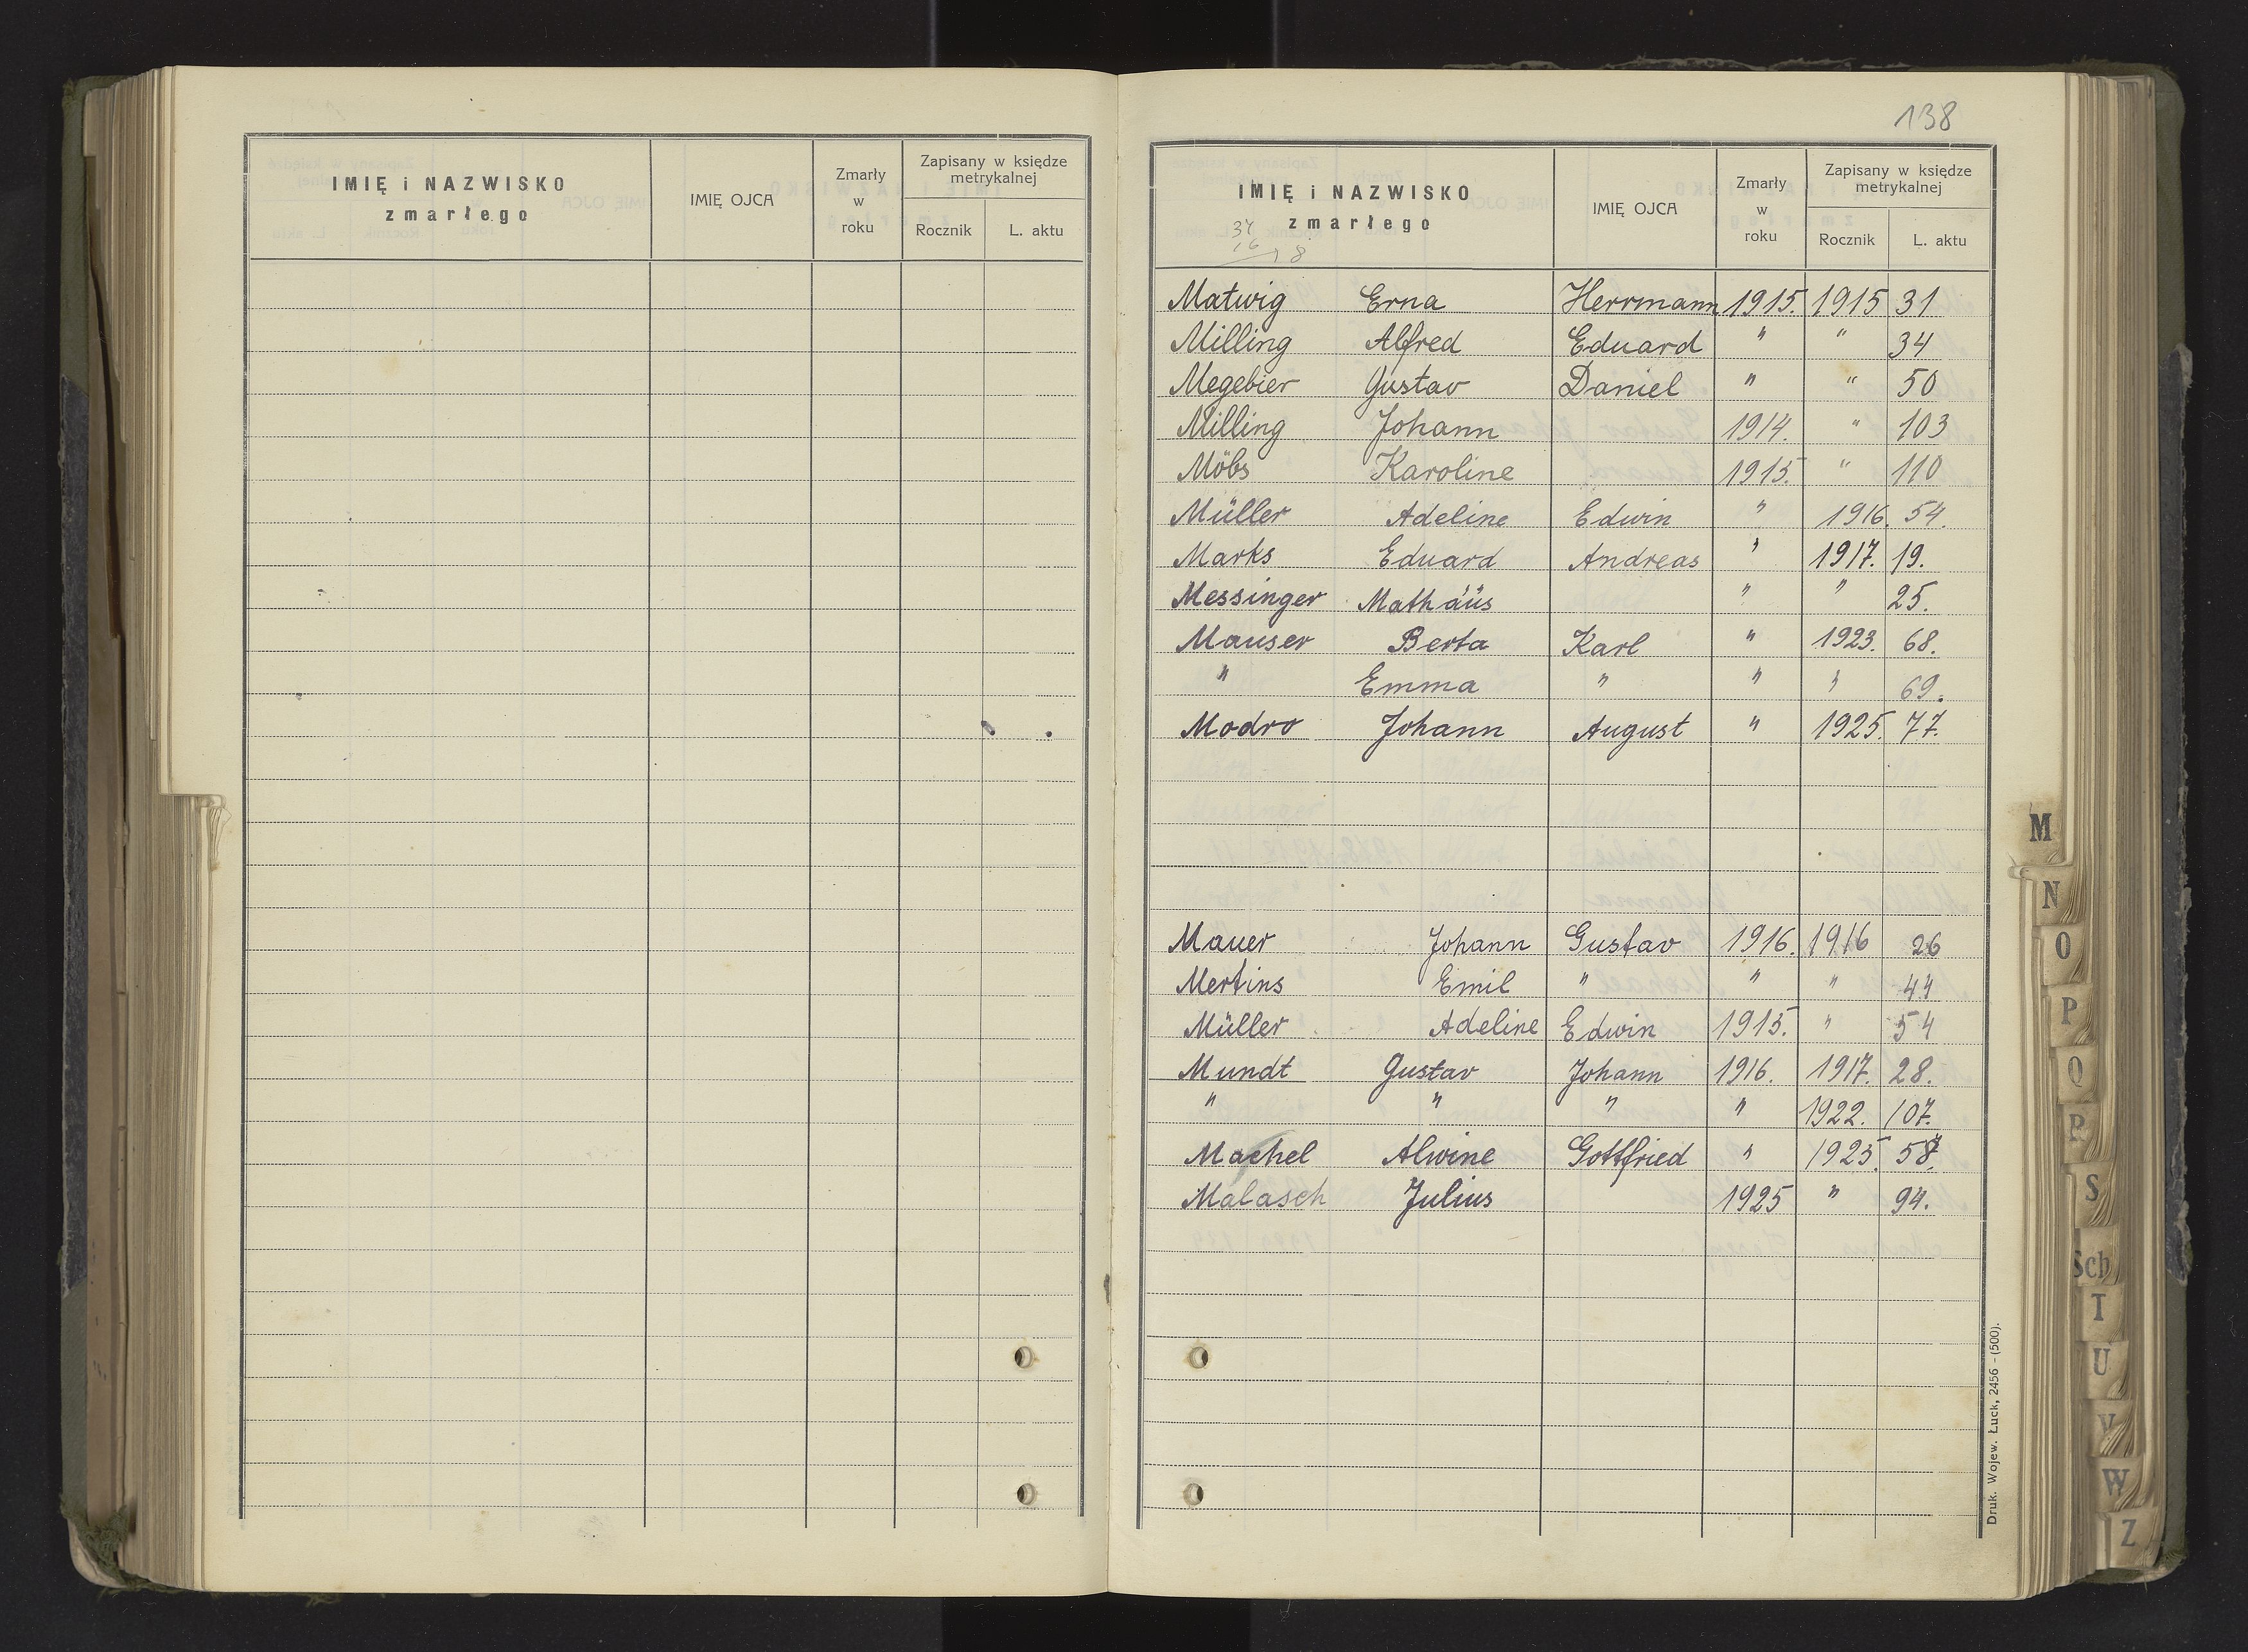 IMIĘ i NAZWISKO
zmarłego
IMIĘ OJCA
Zmarły
w
roku
Zapisany w księdze
metrykalnej
Rocznik L. aktu
138
IMIĘ i NAZWISKO
zmarłego
IMIĘ OJCA
Zmarły
w
roku
Zapisany w księdze
metrykalnej
Rocznik L. aktu
Matwig Erna Herrmann 1915. 1915 31
Milling Alfred Eduard " " 34
Megebier Gustav Daniel " " 50
Milling Johann 1914. " 103
Möbs Karoline 1915. " 110
Müller Adeline Edwin " 1916. 54.
Marks Eduard Andreas " 1917. 19.
Messinger Mathäüs " " 25.
Mauser Berta Karl " 1923. 68.
" Emma " " " 69.
Modro Johann August " 1925. 77.
Mauer Johann Gustav 1916. 1916 26
Mertins Emil " " " 44
Müller Adeline Edwin 1915. " 54
Mundt Gustav Johann 1916. 1917. 28.
" " " " 1922. 107.
Machel Alwine Gottfried " 1925. 58.
Malasch Julius 1925 " 94.
M
N
O
P
Q
R
S
Sch
T
U
V
W
Z
Druk. Wojew. Łuck, 2456 - (500).